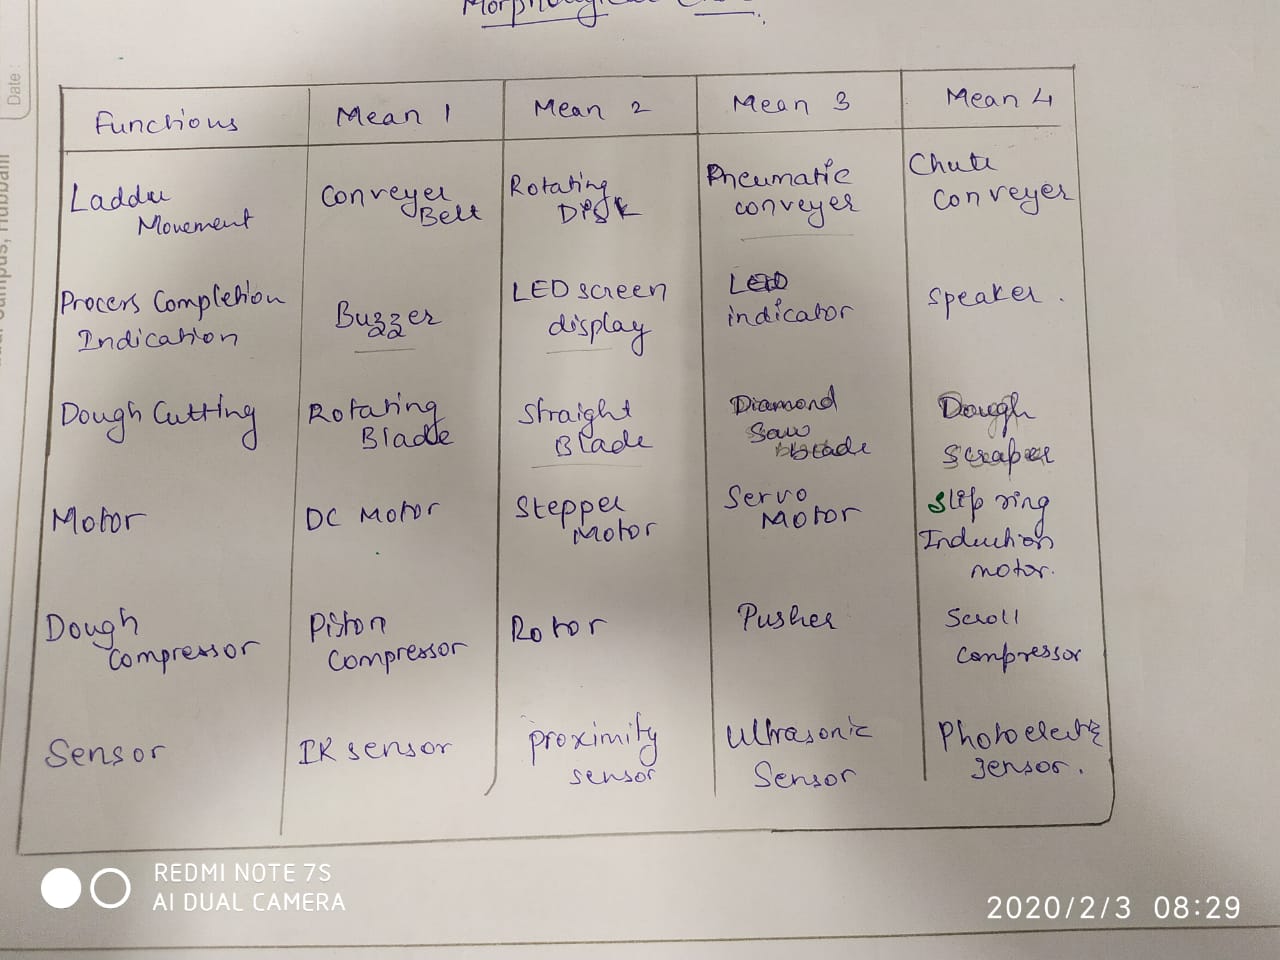 Morphological
Date:
Functions Mean 1 Mean 2 Mean 3 Mean 4
Laddu Movement Conveyer Belt Rotating Disk Pneumatic conveyer Chute Conveyer
Process Completion Indication Buzzer LED screen display LED indicator Speaker.
Dough Cutting Rotating Blade Straight Blade Diamond Saw blade Dough Scraper
Motor DC Motor Stepper Motor Servo Motor Slip ring Induction motor.
Dough Compressor Piston Compressor Rotor Pusher Scroll compressor
Sensor IR sensor proximity sensor Ultrasonic Sensor Photoelectric sensor.
REDMI NOTE 7S
AI DUAL CAMERA
2020/2/3 08:29